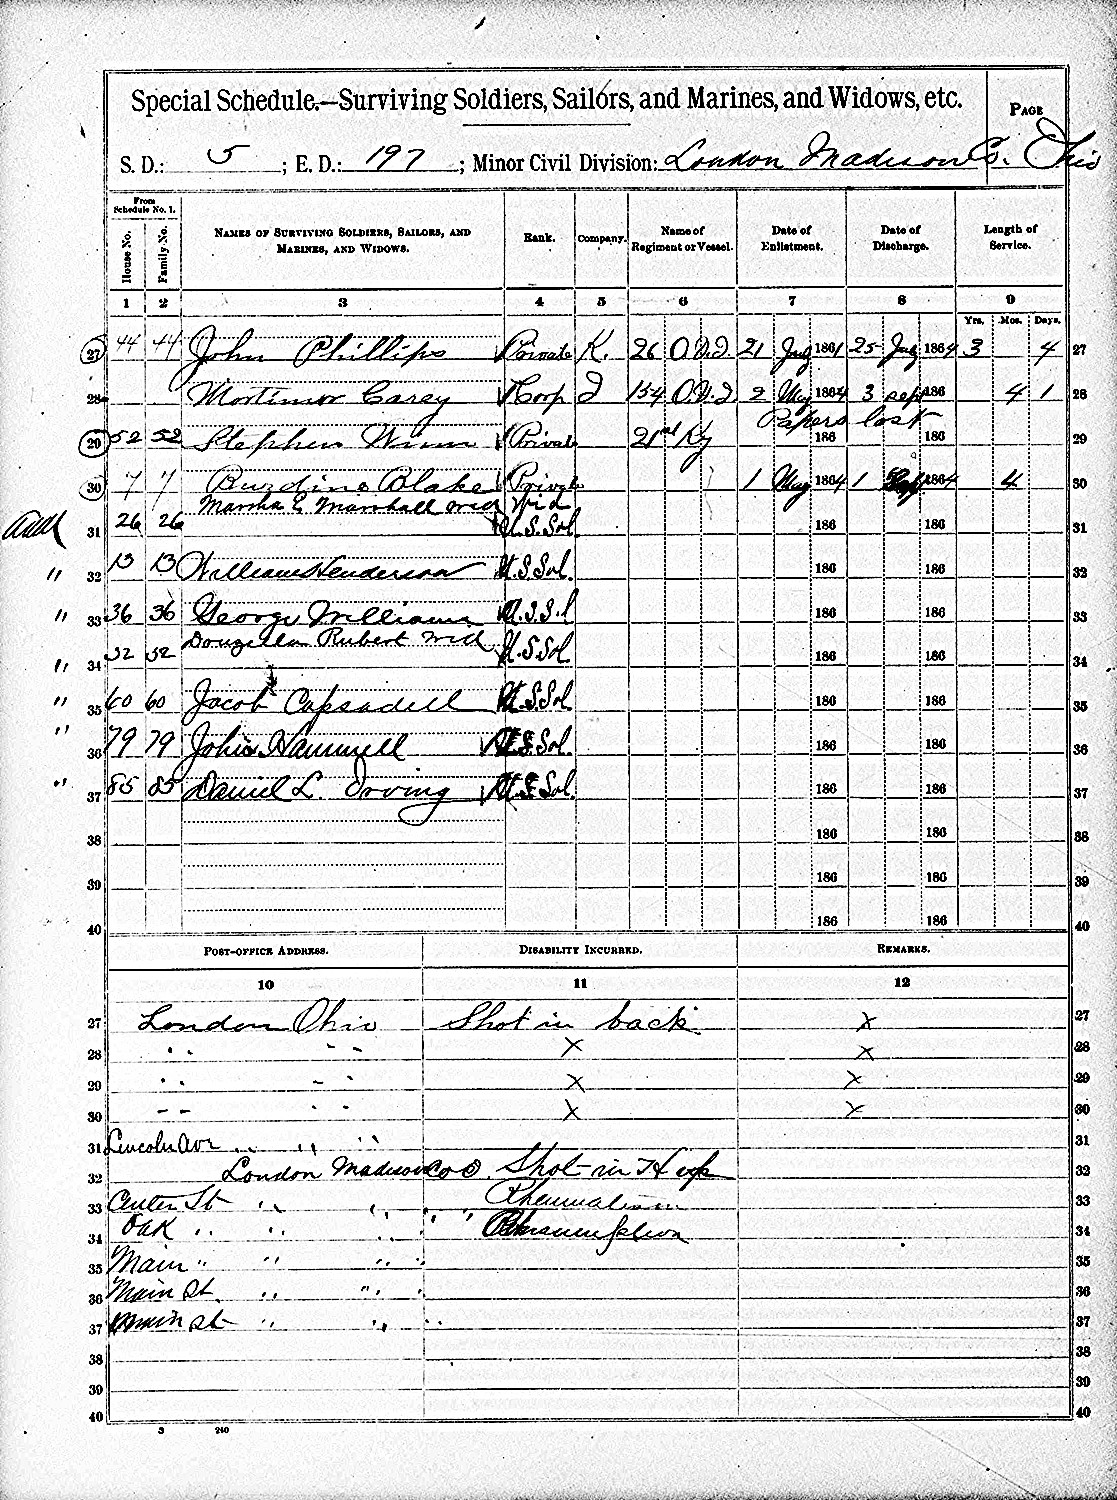 Special Schedule.—Surviving Soldiers, Sailors, and Marines, and Widows, etc.
PAGE
S. D.: 5 ; E. D.: 197 ; Minor Civil Division: London Madison Co. Ohio
From Schedule No. 1.
House No. Family No. NAMES OF SURVIVING SOLDIERS, SAILORS, AND MARINES, AND WIDOWS. Rank. Company. Name of Regiment or Vessel. Date of Enlistment. Date of Discharge. Length of Service.
1 2 3 4 5 6 7 8 9
Yrs. Mos. Days.
27 44 44 John Phillips Private K. 26 O.V.I. 21 July 1861 25 July 1864 3 4 27
28 Mortimor Carey Corp I 154 O.V.I. 2 May 1864 3 sept 186 4 1 28
Papers lost
29 52 52 Stephen Winn Private 21st Ky 186 186 29
30 7 7 Burdine Blake Private 1 May 1864 1 Sep 1864 4 30
Martha E Marshall Wid Wid
add 31 26 26 U.S. Sol. 186 186 31
" 32 13 13 William Henderson U.S. Sol. 186 186 32
" 33 36 36 George Williams U.S. Sol 186 186 33
Rubert Wid
" 34 52 52 U.S. Sol 186 186 34
" 35 60 60 Jacob Capsadell U.S. Sol 186 186 35
" 36 79 79 John Hammell U.S. Sol. 186 186 36
" 37 85 85 Daniel L. Irving U.S. Sol. 186 186 37
38 186 186 38
39 186 186 39
40 186 186 40
POST-OFFICE ADDRESS. DISABILITY INCURRED. REMARKS.
10 11 12
27 London Ohio Shot in back x 27
28 " " " x x 28
29 " " " x x 29
30 " " " x x 30
31 Lincoln Ave " " " 31
32 London Madison Co O. Shot in Hip 32
33 Center St " " " Rheumatism 33
34 Oak " " " " 34
35 Main " " " " 35
36 Main St. " " " 36
37 Main St " " " 37
38 38
39 39
40 40
3 240